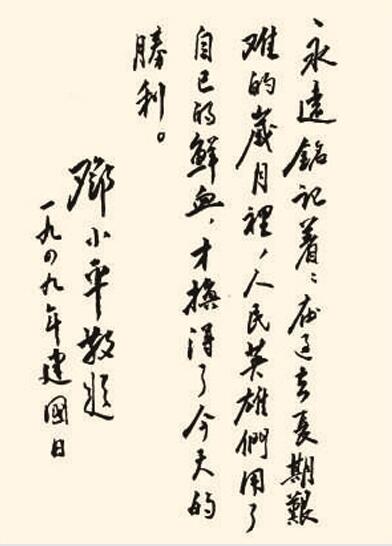 永远銘記着：在过去長期艱
难的歲月裡，人民英雄們用了
自己的鮮血，才換得了今天的
勝利。
鄧小平敬题
一九四九年建國日